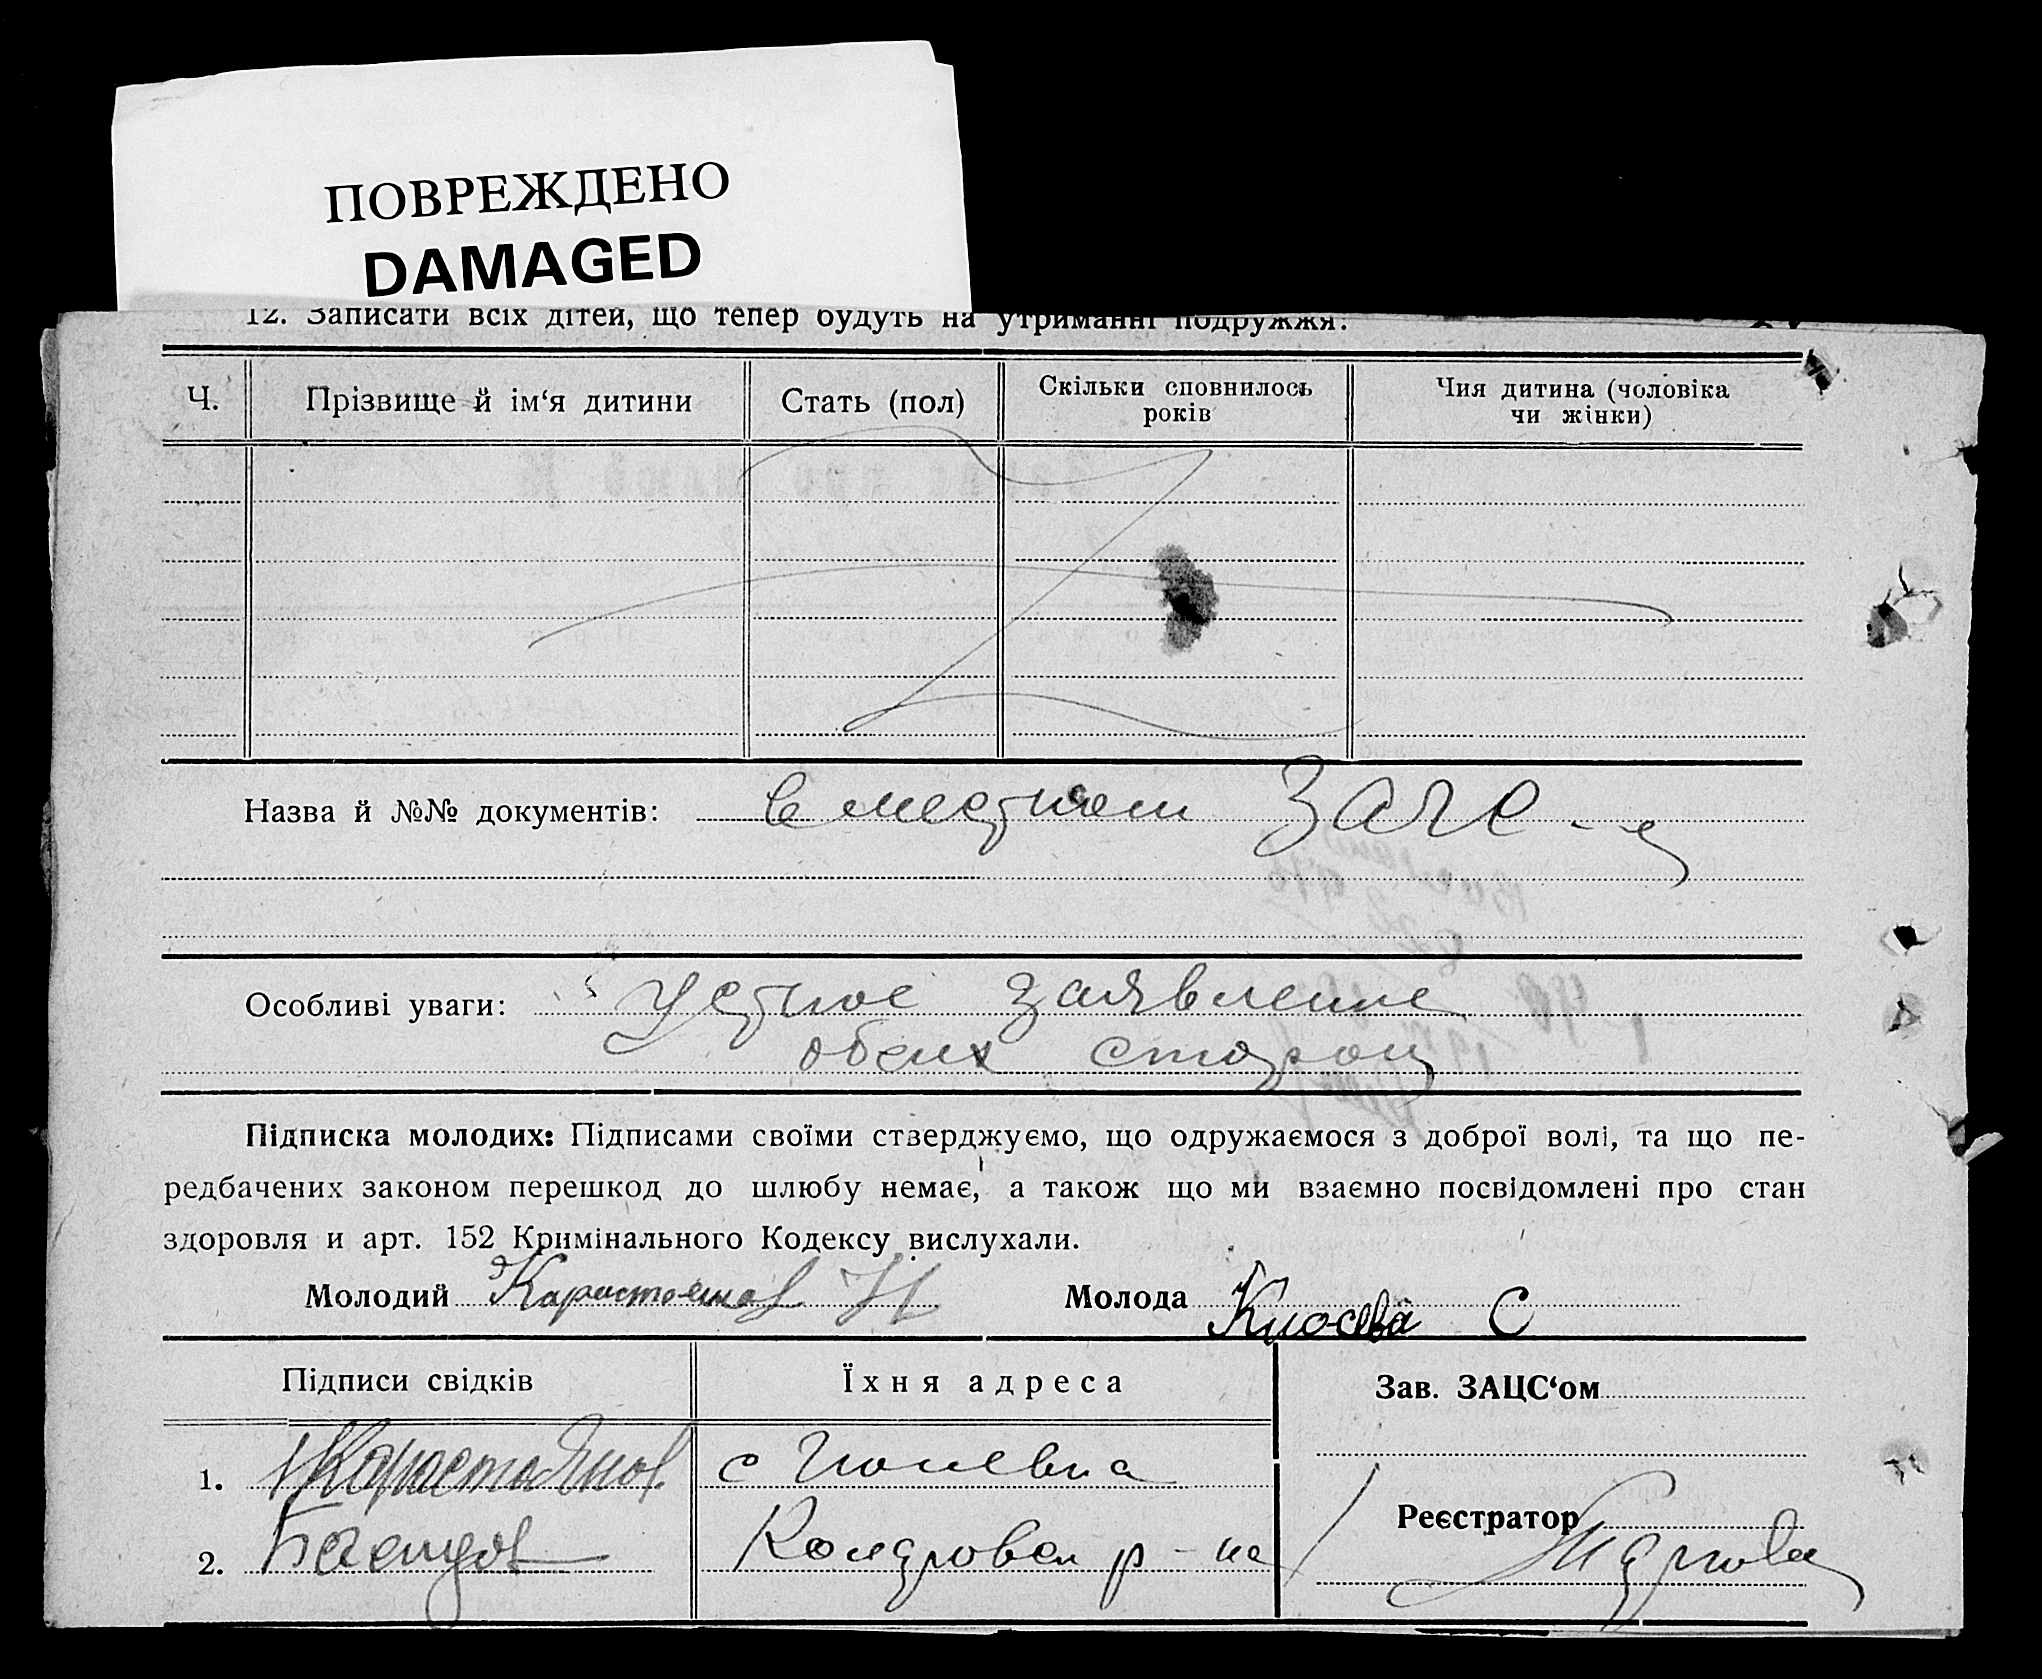 ПОВРЕЖДЕНО
DAMAGED
12. Записати всіх дітей, що тепер будуть на утриманні подружжя:
Ч. Прізвище й ім‘я дитини Стать (пол) Скільки сповнилось років Чия дитина (чоловіка чи жінки)
Назва й №№ документів: в местном Загс-е
Особливі уваги: Устное заявление
обеих сторон
Підписка молодих: Підписами своїми стверджуємо, що одружаємося з доброї волі, та що пе-
редбачених законом перешкод до шлюбу немає, а також що ми взаємно посвідомлені про стан
здоровля и арт. 152 Кримінального Кодексу вислухали.
Молодий Карастоянов Н Молода Кносева С
Підписи свідків Їхня адреса Зав. ЗАЦС‘ом
1. Карастоянов с
Реєстратор
2. р-на